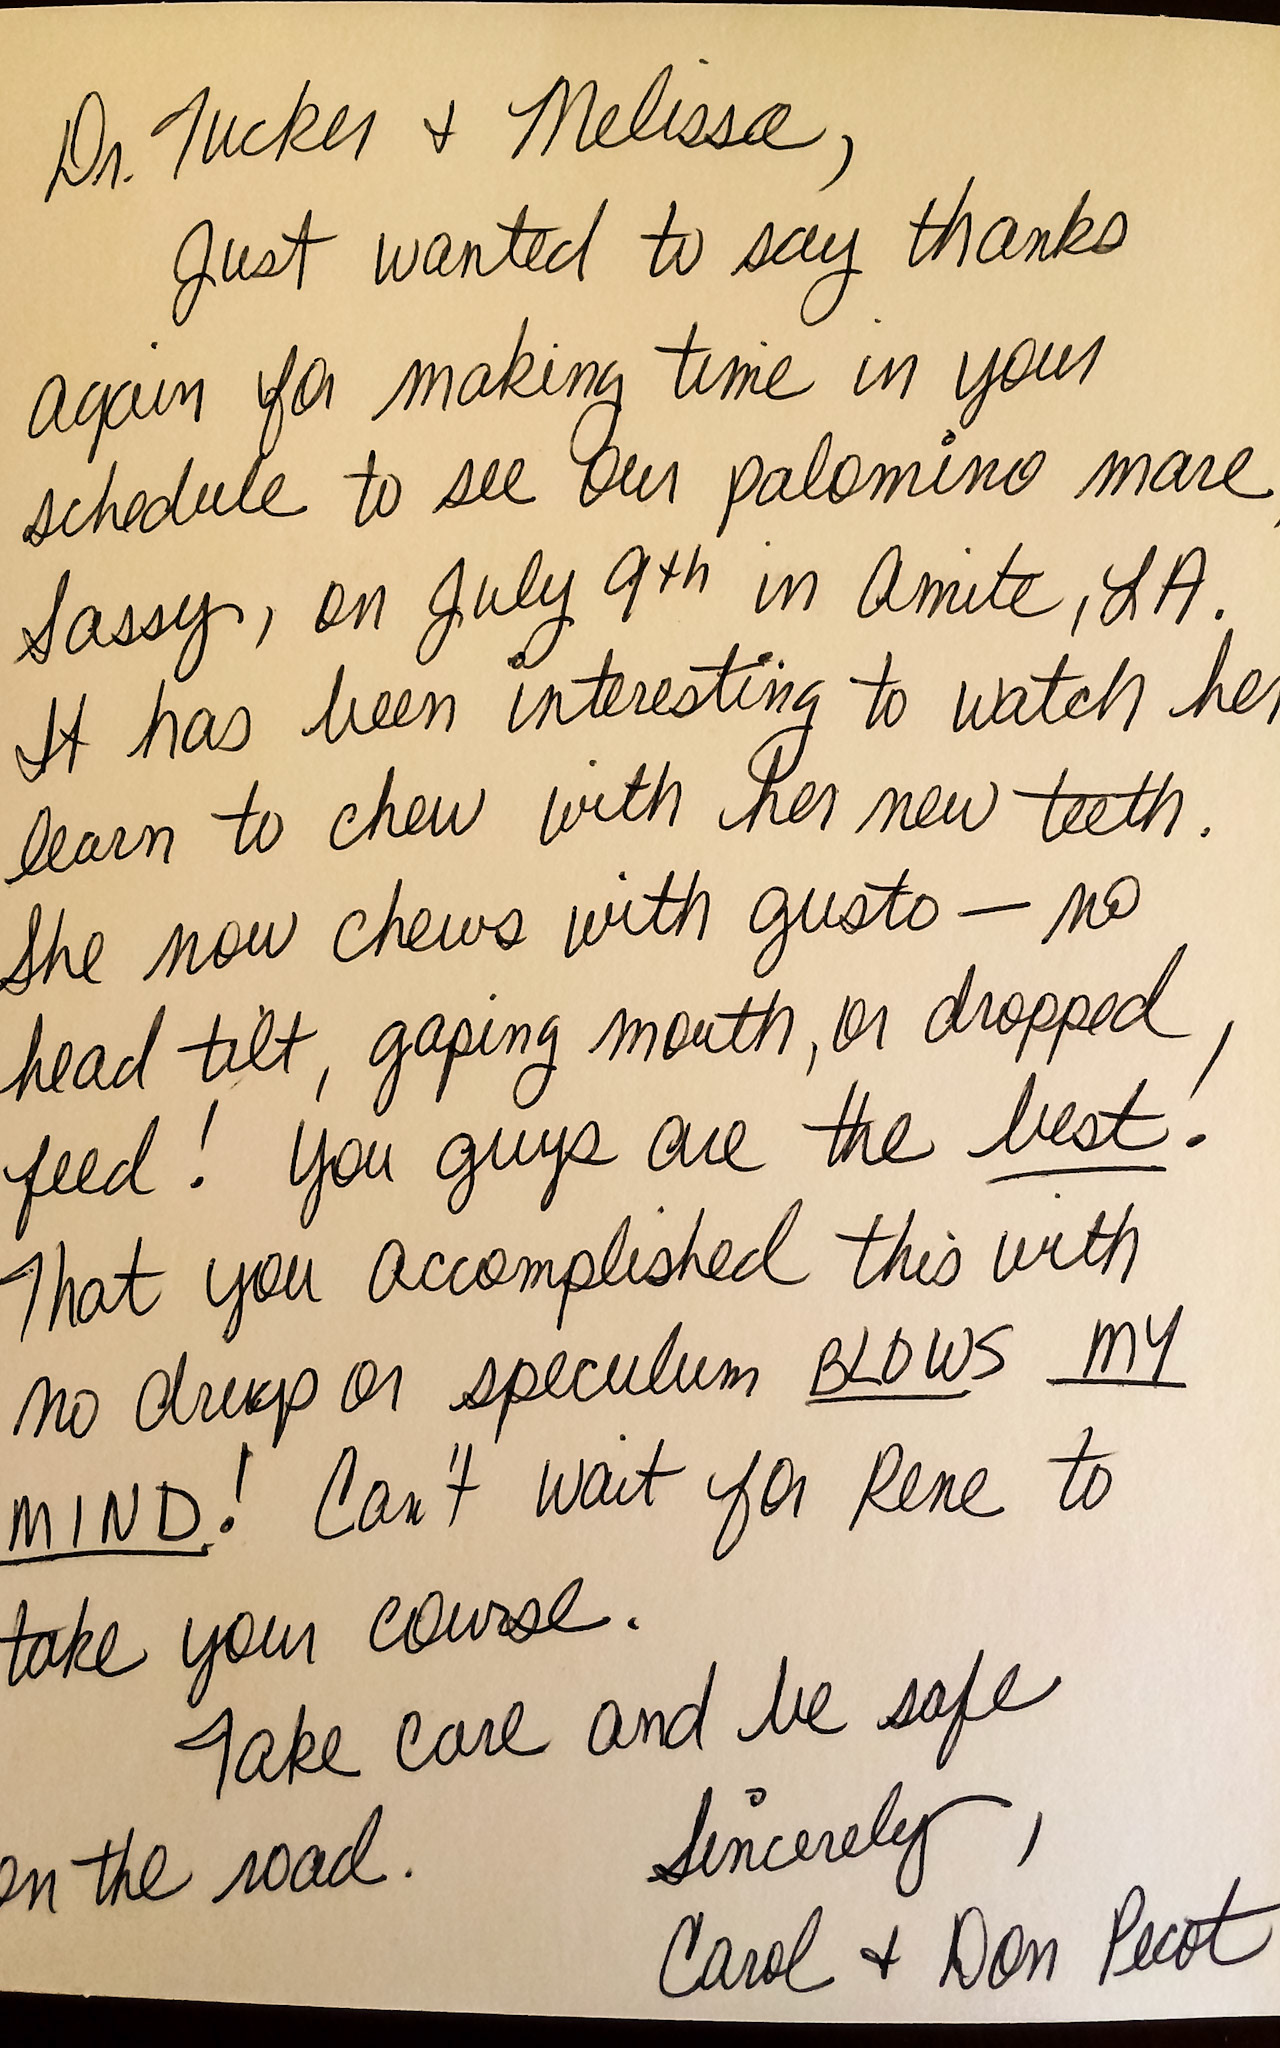 Dr. Tucker + Melissa,
Just wanted to say thanks
again for making time in your
schedule to see our palomino mare,
Sassy, on July 9th in Amite, LA.
It has been interesting to watch her
learn to chew with her new teeth.
She now chews with gusto — no
head tilt, gaping mouth, or dropped
feed! You guys are the best!
That you accomplished this with
no drugs or speculum BLOWS MY
MIND! Can't wait for Rene to
take your course.
Take care and be safe
on the road.
Sincerely,
Carol + Don Pecot